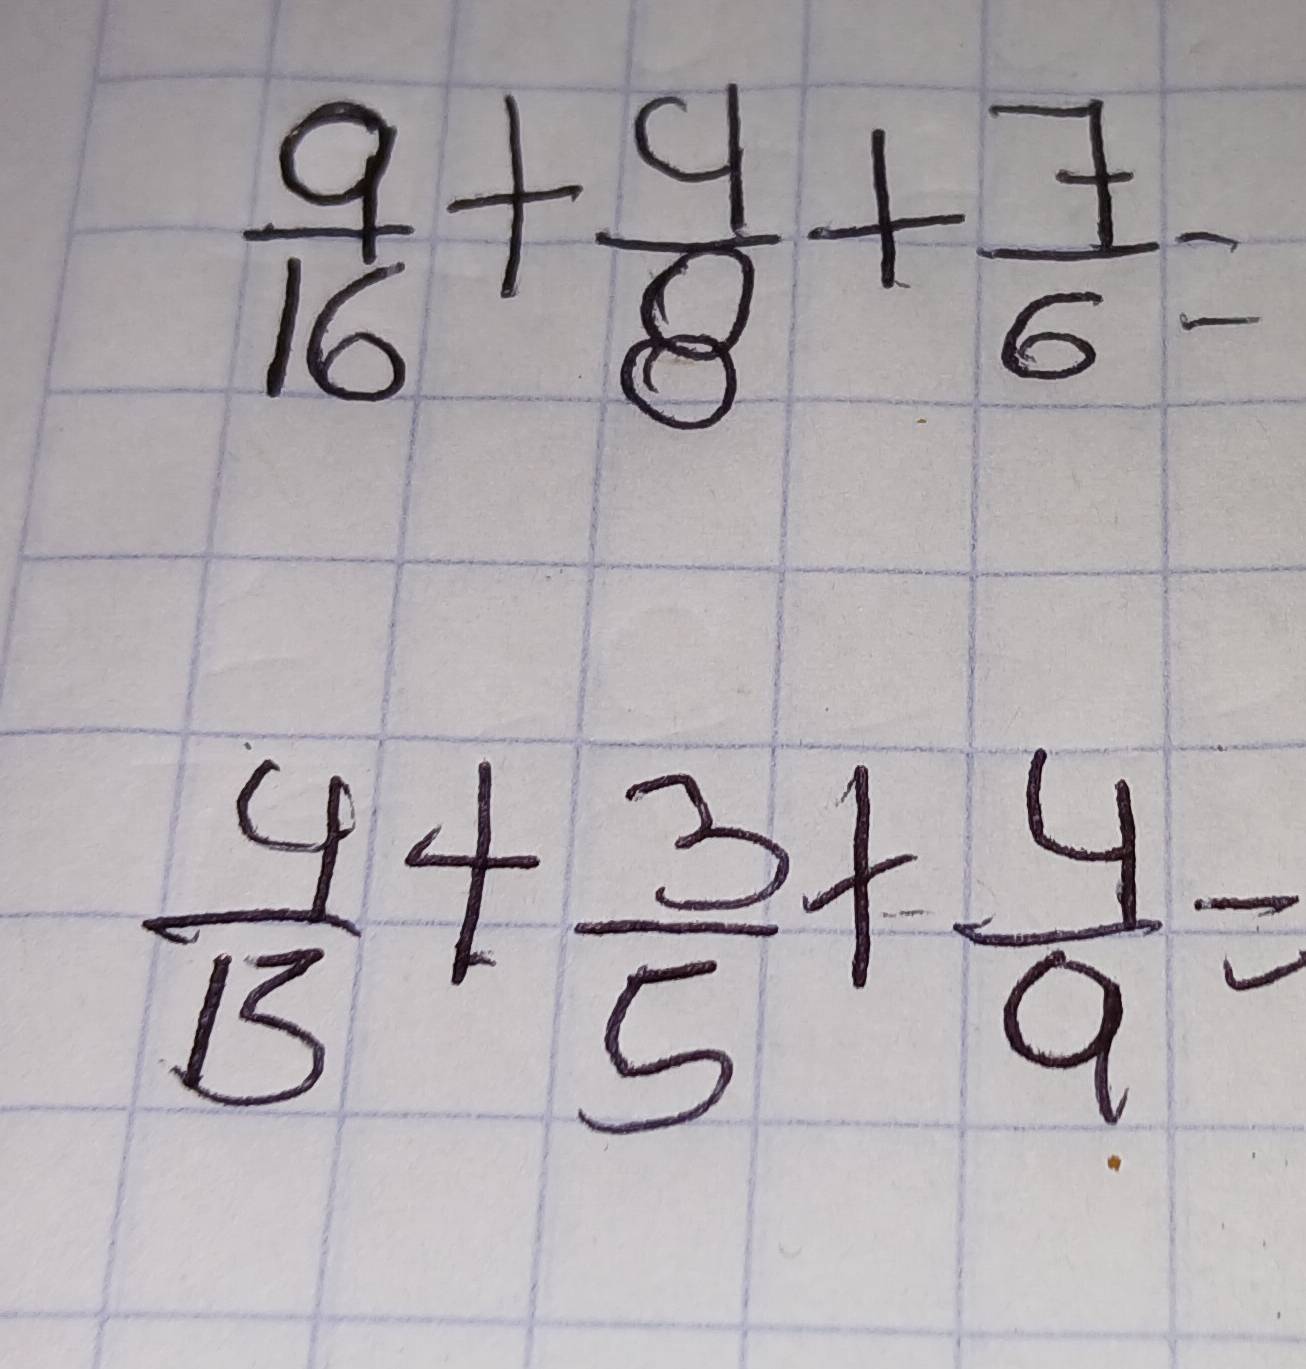 9/16 + 4/8 + 7/6 =
4/15 + 3/5 + 4/9 =